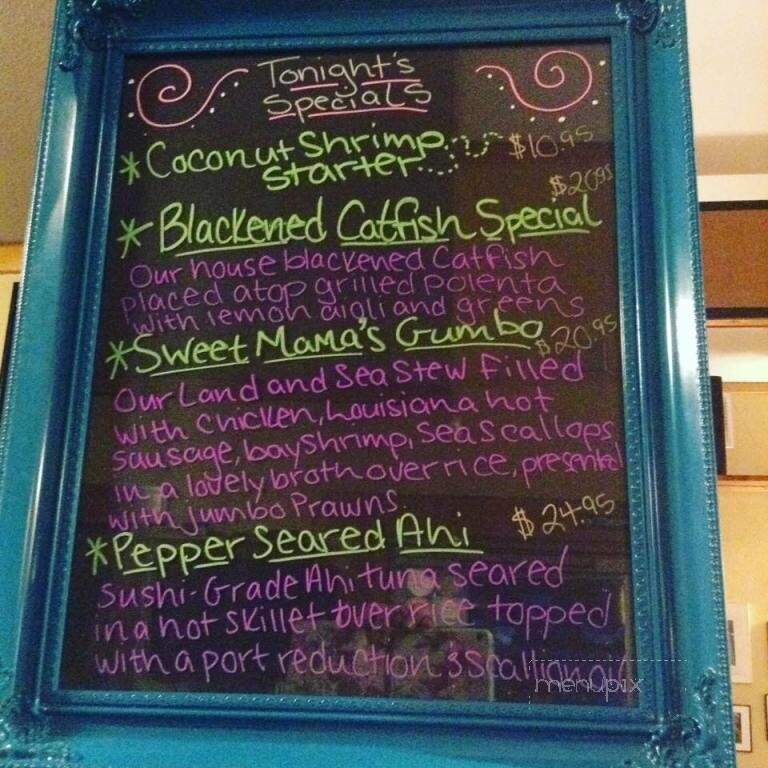 Tonight's
Specials
*Coconut Shrimp $10.95
Starter
$20.95
*Blackened Catfish Special
Our house blackened Catfish
Placed atop grilled polenta
with lemon aigli and greens
*Sweet Mama's Gumbo $20.95
Our Land and Sea Stew Filled
with Chicken, Louisiana hot
sausage, bay Shrimp, Sea Scallops
in a lovely broth over rice, presented
with Jumbo Prawns
$24.95
*Pepper Seared Ahi
Sushi-Grade Ahi tuna seared
in a hot skillet over rice topped
with a port reduction & Scallion oil
menupix